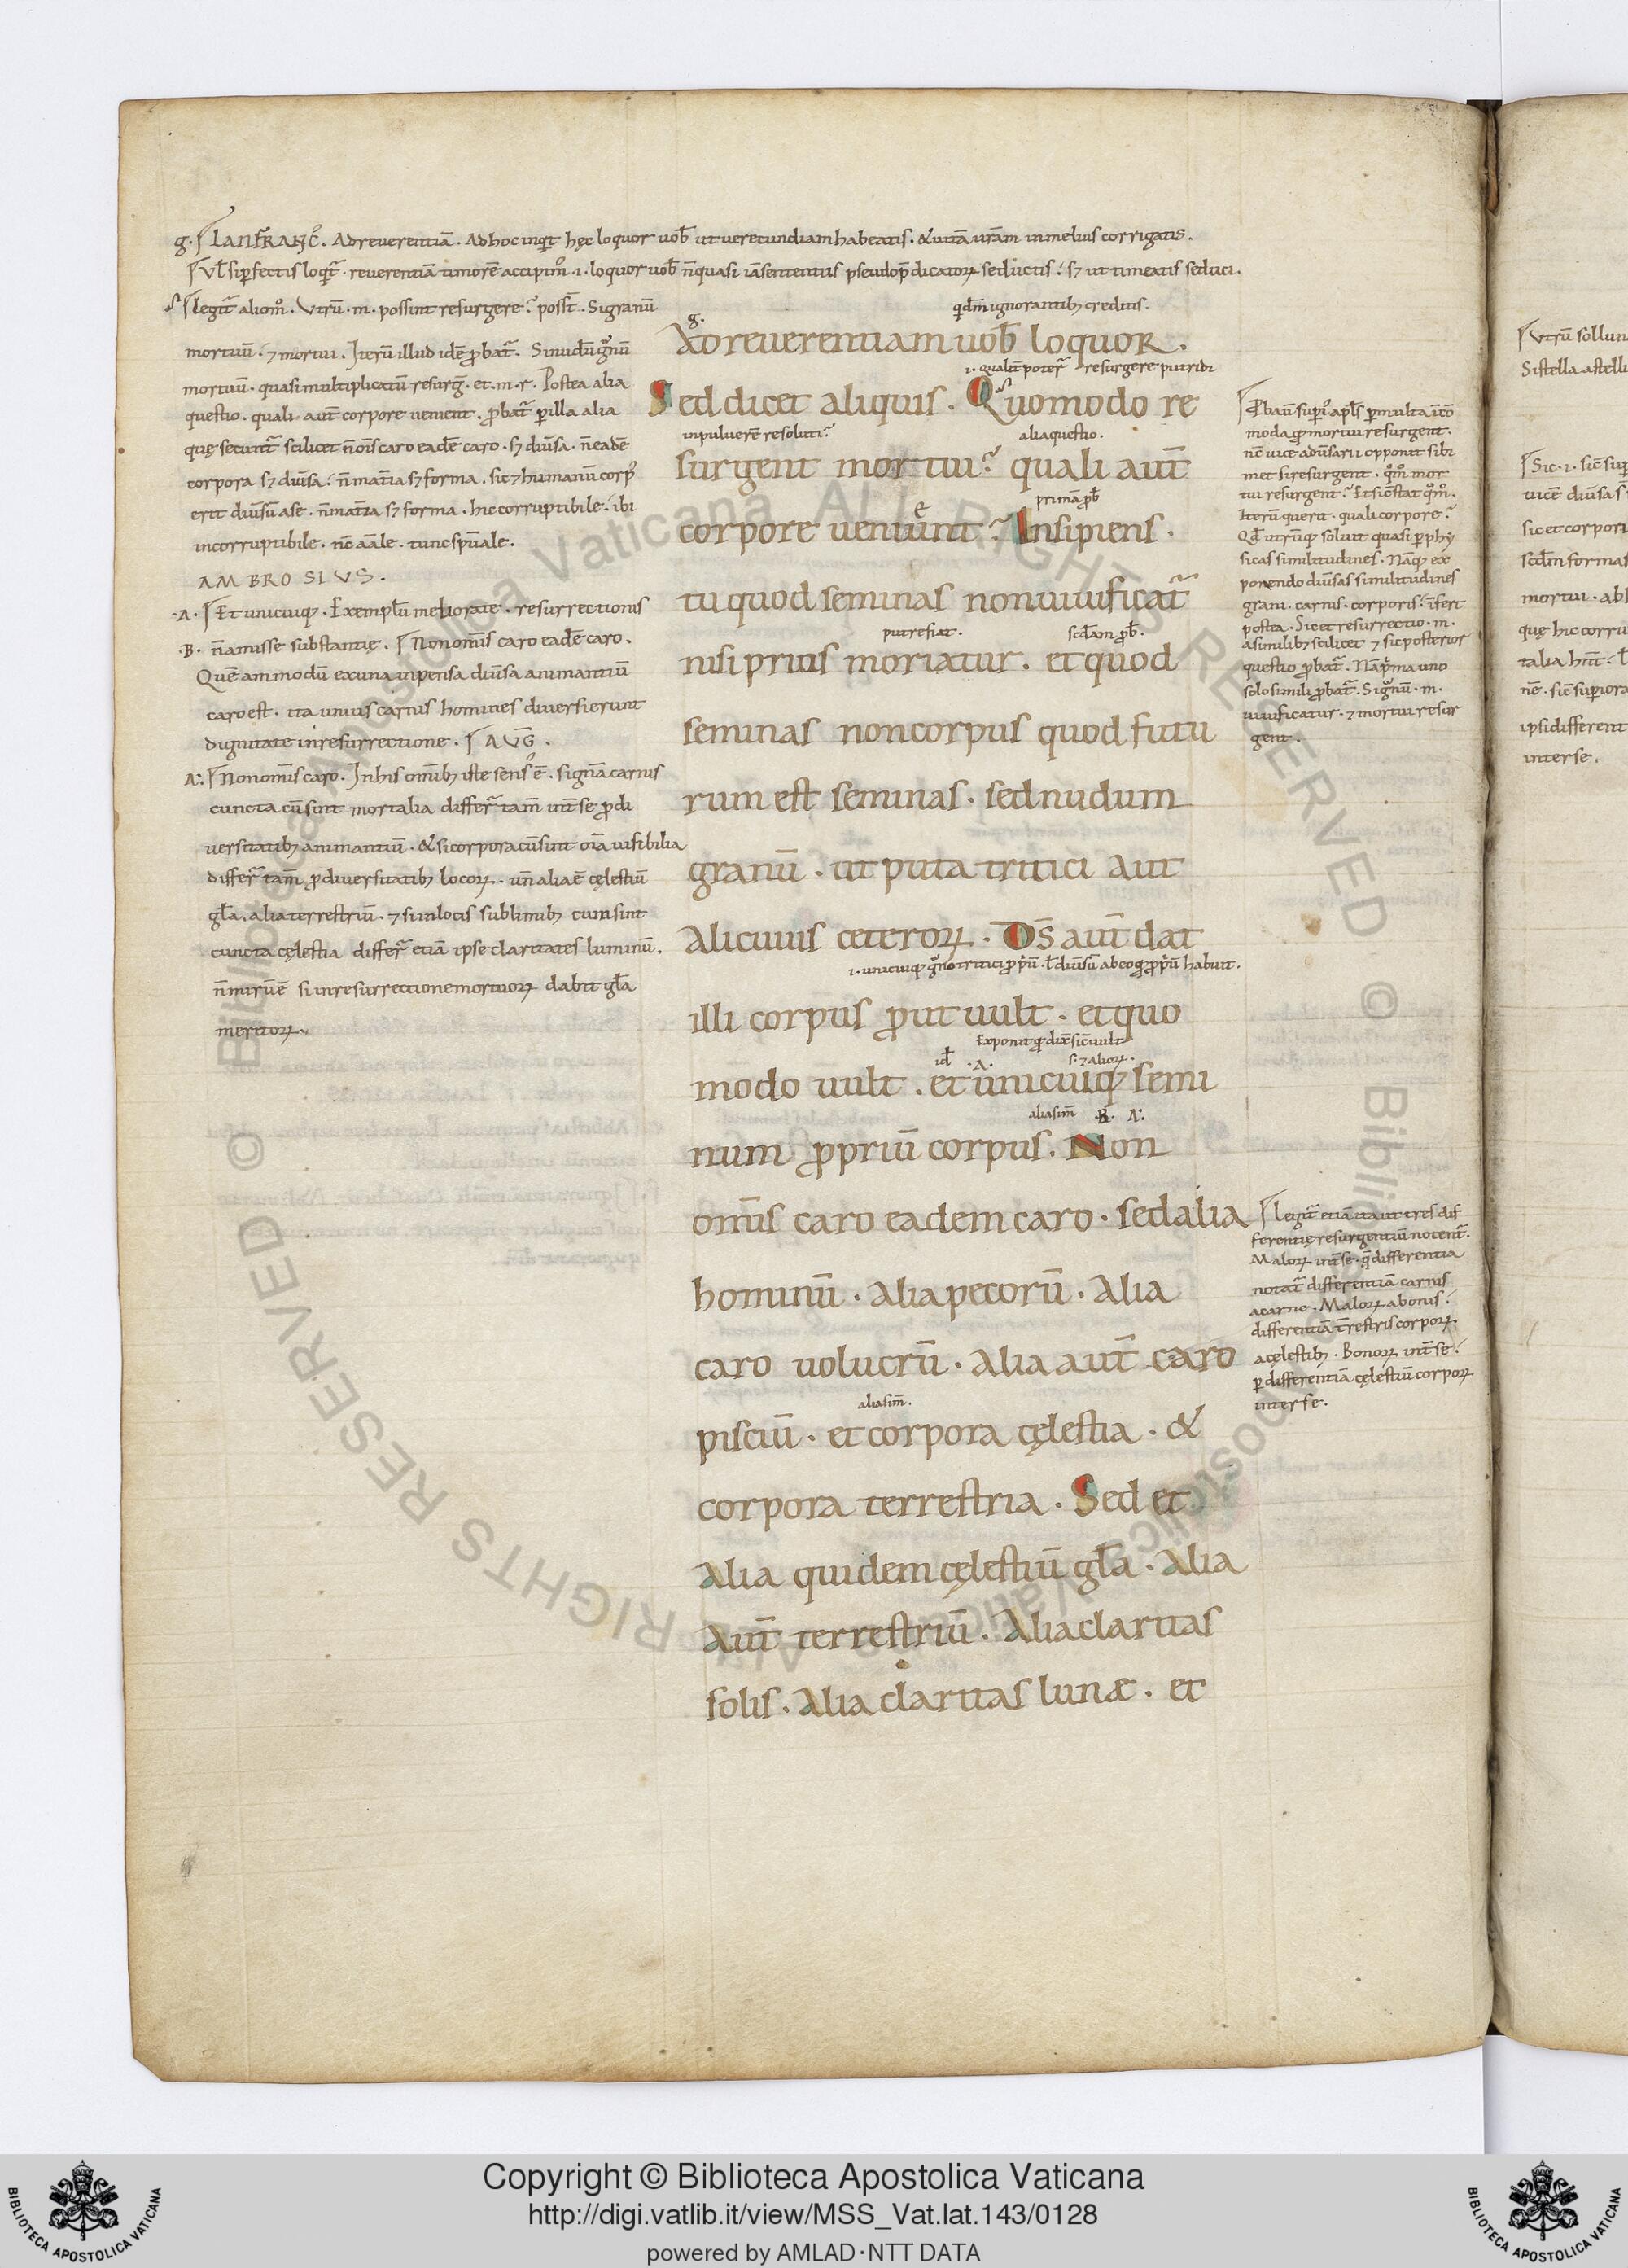 g. LANFRANC᷒. Adreuerentiā. Adhocinqt hęc loquor uob̄ utuerecundiamhabeatis. &uitā urām inmelius corrigatis.
Vl̄ sip̄fectis loqt̄. reuerentiā timorē accipim᷒ .i. loquor uob̄ n̄quasi iāsententiis pseudop̄dicatoꝝ seductis. sꝫ ut timeatis seduci.
legit̄ aliom̊. Vtrū .m. possint resurgere? poss̄t. Sigranū
mortuū. ⁊ mortui. Iterū illud idē ꝓbat̄. Sinudūgͦnū
mortuū. quasi multiplicatū resurḡ. et .m. r. Postea alia
questio. quali aut̄ corpore uenient. ꝓbat̄ ꝑilla alia
quę secunt̄ scilicet n̄ om̄s caro eadē caro. sꝫ diūsa. n̄eadē
corpora sꝫ diūsa. n̄mat̄ia sꝫ forma. sic⁊humanū corpꝰ
erit diūsū ase. n̄mat̄ia sꝫ forma. hic corruptibile. ibi
incorruptibile. nc̄ aāle. tunc sp̄uale.
AMBROSIVS.
.A. Et unicuiqꝫ. Exemplū meliorate. resurrectionis
.B. n̄amisse substantię. Nonom̄is caro eadē caro.
Quē ammodū exuna inpensa diūsa animantiū
caro est. ita unius carnis homines diuersi erunt
dignitate inresurrectione. AVḠ.
A: Nonom̄is caro. Inhis om̄ibꝫ iste sensꝰ ē. signā carnis
cuncta cū sint mortalia differt̄ tam̄ int̄se ꝓdi
uersitatibꝫ animantiū. & sicorpora cū sint oīa uisibilia
differt̄ tam̄ ꝓ diuersitatibꝫ locoꝝ. un̄ alia ē cęlestiū
gl̄a. alia terrestriū. ⁊ si inlocis sublimibꝫ cum sint
cuncta cęlestia differt̄ etiā ipse claritates luminū.
n̄ mirū ē si inresurrectionemortuoꝝ dabit gl̄a
meritoꝝ.
qdm̄ ignorantibꝫ creditis.
g.
Adreuerentiam uob̄ loquor.
.i. qualit̄ poter̄ resurgere putridi
Sed dicet aliquis. Quomodo re
inpuluerē resoluti? aliaquestio.
surgent mortui? quali aut̄
primā ꝓb̄
e
corpore ueniunt? Insipiens.
tu quod seminas nonuiuificat̄
putrefiat. scdam ꝓb̄.
nisi prius moriatur. et quod
seminas noncorpus quod futu
rum est seminas. sed nudum
granū. ut puta tritici aut
alicuius ceteroꝝ. Ds̄ aut̄ dat
.i. unicuiqꝫ gͦno tritici ꝓpriū. l̄ diūsū abeoqͦ ꝓpriū habuit.
illi corpus ꝓut uult. et quo
Exponit qͦ dix̄ sic̄ uult
id̄ .A. s. ⁊ alioꝝ.
modo uult. et unicuiqꝫ semi
aliasim̄ .B. A:
num ꝓpriū corpus. Non
om̄is caro eadem caro. sed alia
hominū. alia pecorū. alia
caro uolucrū. alia aut̄ caro
aliasim̄.
pisciū. et corpora cęlestia. &
corpora terrestria. Sed et
alia quidem cęlestiū gl̄a. alia
aut̄ terrestriū. Alia claritas
solis. Alia claritas lunæ. et
moda ꝓ mortui resurgent.
nc̄ uice adūsarii opponit sibi
met si resurgent. qͦmͦ mor
tui resurgent? Et sic̄stat qͦmͦ.
Iterū querit. quali corpore?
Qd̄ utrūqꝫ soluit quasi ꝑ phy
sicas similitudines. Nāqꝫ ex
ponendo diūsas similitudines
grani. carnis. corporis. īfert
postea. Sic et resurrectio .m.
asimilibꝫ scilicet ⁊ sic posterior
questio ꝓbat̄. Nā pͥma uno
solo simili ꝓbat̄. Sigͦnū .m.
uiuificatur. ⁊ mortui resur
gent.
Legit̄ etiā ita ut tres dif
ferentię resurgentiū notent̄.
Maloꝝ int̄ se. q̄ differentia
notat̄ differentiā carnis
acarne. Maloꝝ abonis.
differentiā t̄restris corpoꝝ.
acęlestibꝫ. Bonoꝝ int̄ se.
ꝑ differentiā cęlestiū corpoꝝ
inter se.
Vtrū sol lun
Si stella astelli
Sic .i. sic̄ sup
uicē diūsa s
sic et corpori
scd̄m formas
mortui. abl
quę hic corru
talia hn̄t. l
nē. sic̄ supiora
ipsi different
inter se.
Copyright © Biblioteca Apostolica Vaticana
http://digi.vatlib.it/view/MSS_Vat.lat.143/0128
powered by AMLAD·NTT DATA
BIBLIOTECA APOSTOLICA VATICANA
BIBLIOTECA APOSTOLICA VATICANA